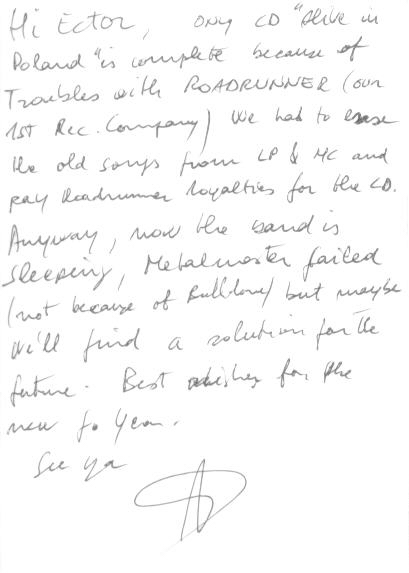 Hi Ector, ony CD "Alive in
Poland" is complete because of
Troubles with ROADRUNNER (our
1st Rec. Company) We had to erase
the old songs from LP & MC and
pay Roadrunner royalties for the CD.
Anyway, now the band is
sleeping, Metalmaster failed
(not because of Bulldozer) but maybe
We'll find a solution for the
future. Best wishes for the
new Year.
See ya